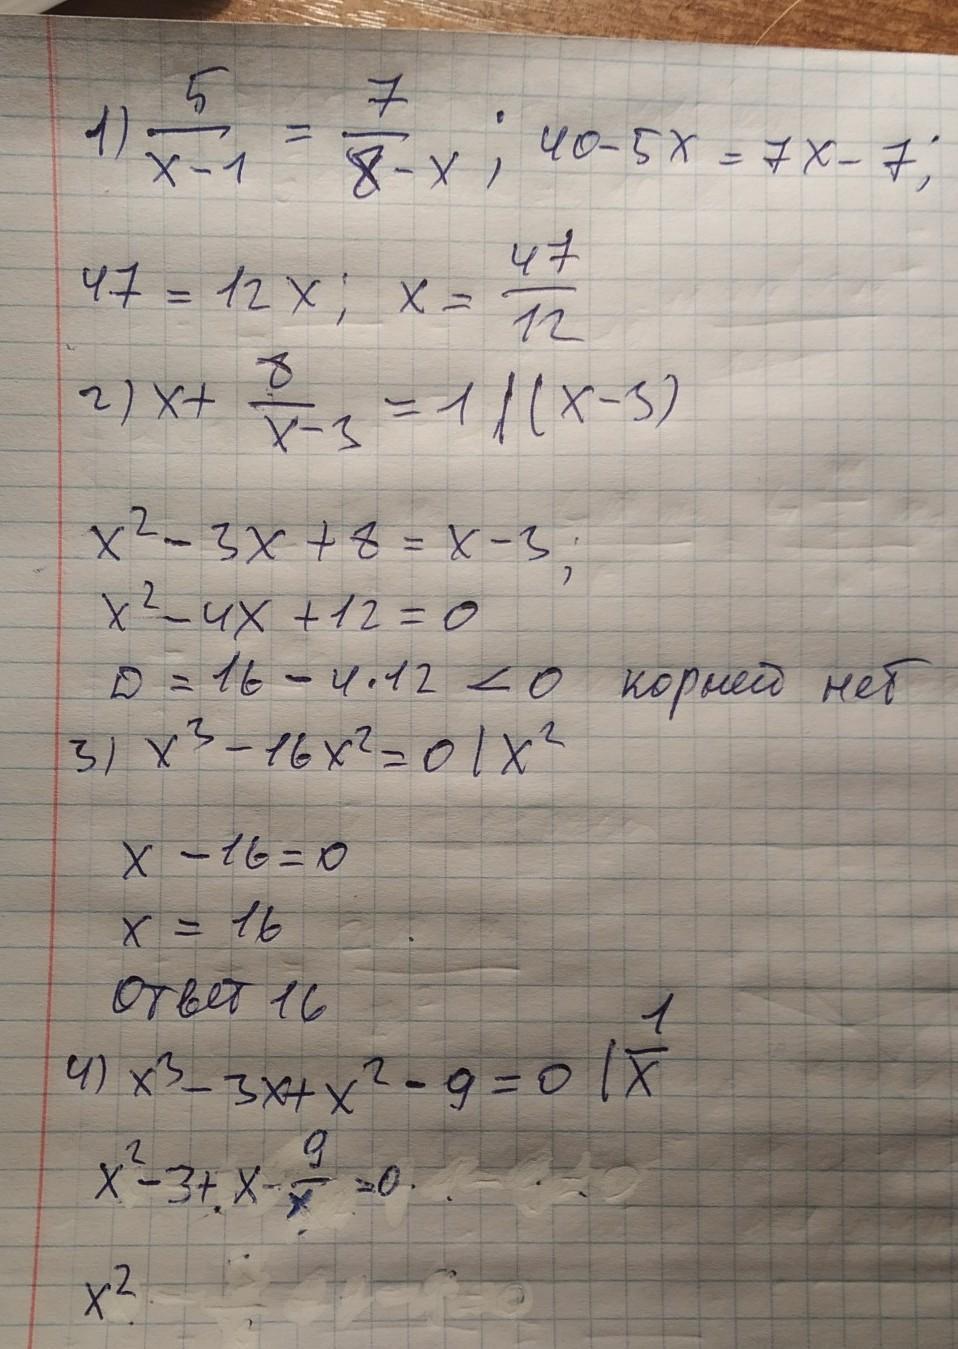 1) 5/(x-1) = 7/(8-x); 40-5x = 7x-7;
47 = 12x; x = 47/12
2) x + 8/(x-3) = 1 | (x-3)
x² - 3x + 8 = x - 3;
x² - 4x + 12 = 0
D = 16 - 4·12 < 0 корней нет
3) x³ - 16x² = 0 | x²
x - 16 = 0
x = 16
Ответ 16
4) x³ - 3x + x² - 9 = 0 | 1/x
x² - 3 + x - 9/x = 0
x²